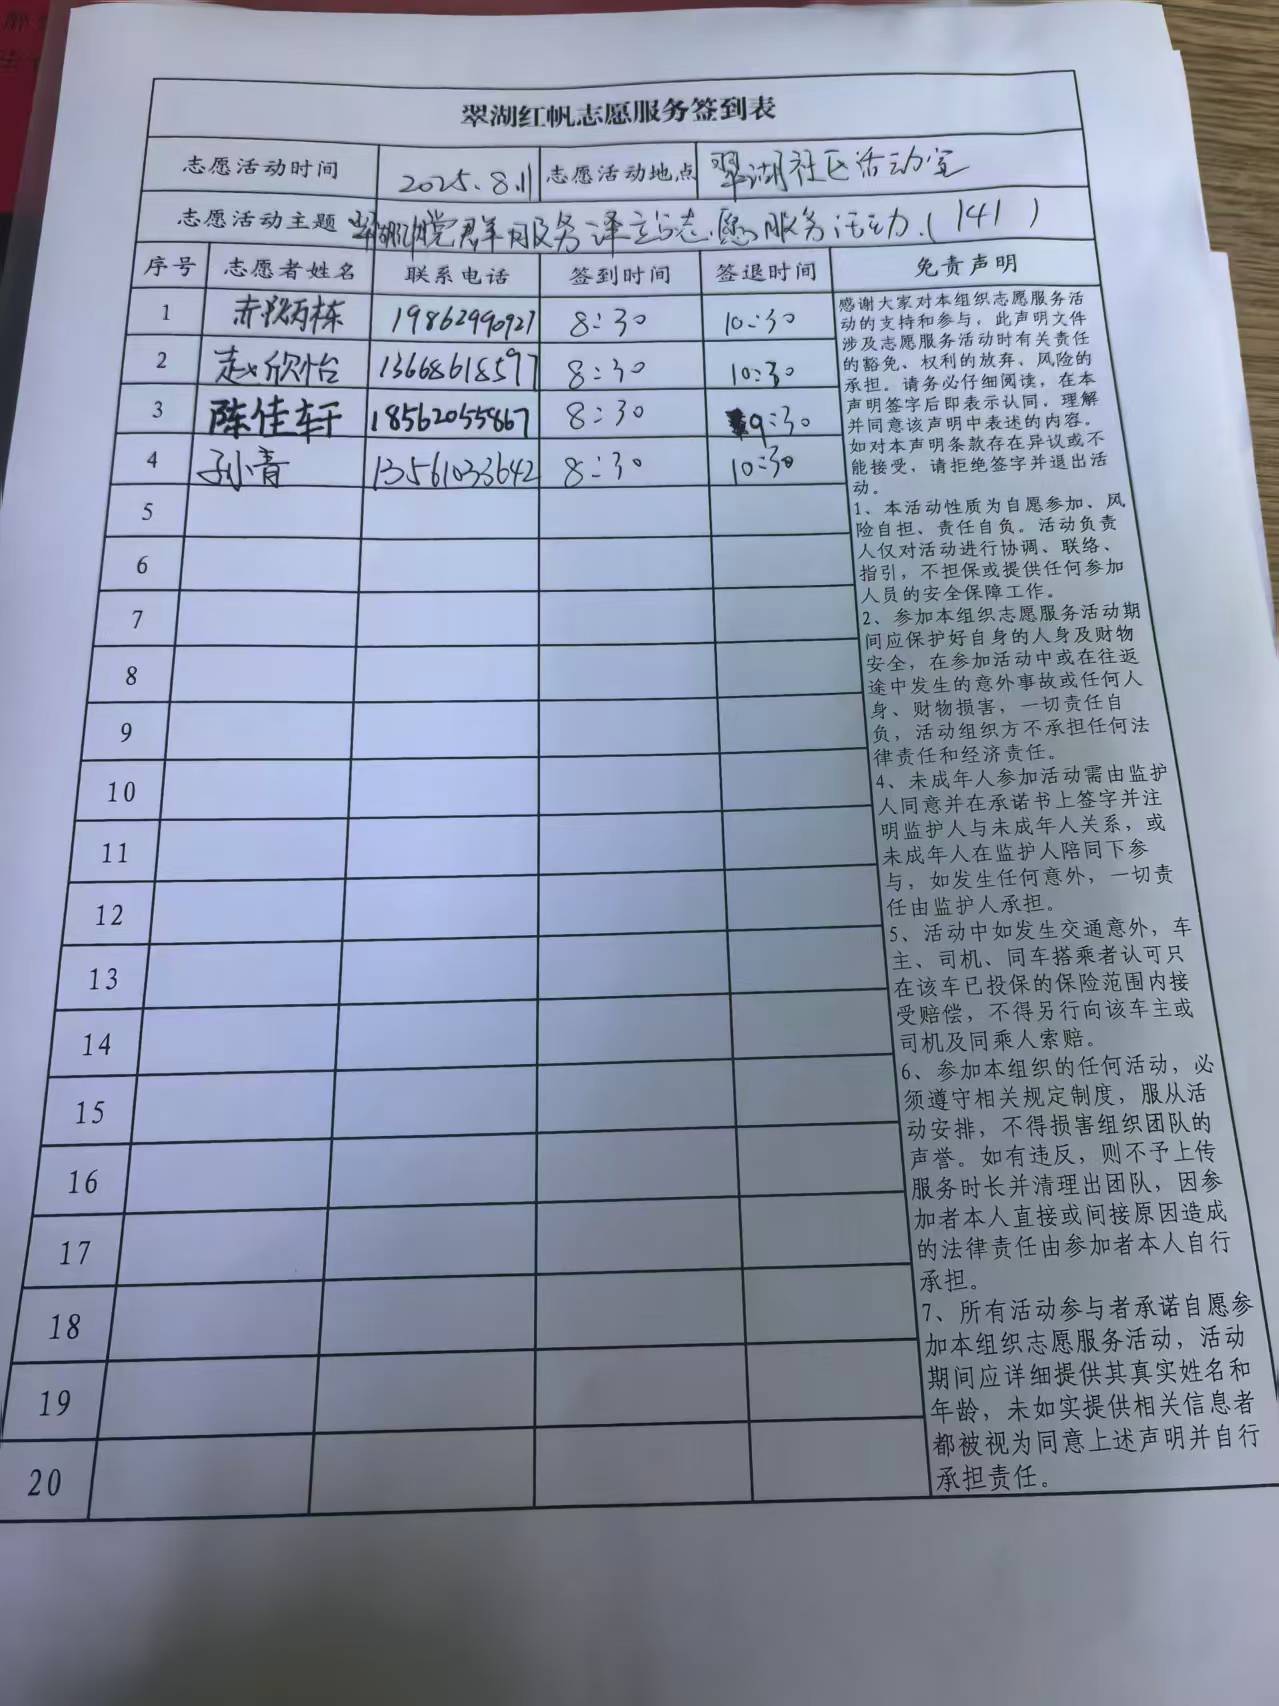 翠湖红帆志愿服务签到表
志愿活动时间 2025.8.11 志愿活动地点 翠湖社区活动室
志愿活动主题 翠湖党群服务译立占志愿服务活动(141)
序号 志愿者姓名 联系电话 签到时间 签退时间 免责声明
1 炳栋 19862990927 8:30 10:30
2 赵欣怡 13668618597 8:30 10:30
3 陈佳轩 18562055867 8:30 9:30
4 孙小青 13561033642 8:30 10:30
5
6
7
8
9
10
11
12
13
14
15
16
17
18
19
20
感谢大家对本组织志愿服务活
动的支持和参与，此声明文件
涉及志愿服务活动时有关责任
的豁免、权利的放弃、风险的
承担。请务必仔细阅读，在本
声明签字后即表示认同、理解
并同意该声明中表述的内容。
如对本声明条款存在异议或不
能接受，请拒绝签字并退出活
动。
1、本活动性质为自愿参加、风
险自担、责任自负。活动负责
人仅对活动进行协调、联络、
指引，不担保或提供任何参加
人员的安全保障工作。
2、参加本组织志愿服务活动期
间应保护好自身的人身及财物
安全，在参加活动中或在往返
途中发生的意外事故或任何人
身、财物损害，一切责任自
负，活动组织方不承担任何法
律责任和经济责任。
4、未成年人参加活动需由监护
人同意并在承诺书上签字并注
明监护人与未成年人关系，或
未成年人在监护人陪同下参
与，如发生任何意外，一切责
任由监护人承担。
5、活动中如发生交通意外，车
主、司机、同车搭乘者认可只
在该车已投保的保险范围内接
受赔偿，不得另行向该车主或
司机及同乘人索赔。
6、参加本组织的任何活动，必
须遵守相关规定制度，服从活
动安排，不得损害组织团队的
声誉。如有违反，则不予上传
服务时长并清理出团队，因参
加者本人直接或间接原因造成
的法律责任由参加者本人自行
承担。
7、所有活动参与者承诺自愿参
加本组织志愿服务活动，活动
期间应详细提供其真实姓名和
年龄，未如实提供相关信息者
都被视为同意上述声明并自行
承担责任。